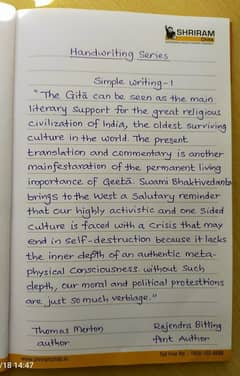 SHRIRAM
Handwriting Series
Simple writing-1
"The Gitā can be seen as the main
literary support for the great religious
civilization of India, the oldest surviving
culture in the world. The present
translation and commentary is another
mainfestaration of the permanent living
importance of Geetā. Swami Bhaktivedanta
brings to the West a Salutary reminder
that our highly activistic and one Sided
culture is faced with a crisis that may
end in self-destruction because it lacks
the inner depth of an authentic meta-
physical Consciousness without Such
depth, our moral and political protestions
are just so much verbiage."
Thomas Merton
author
Rajendra Bitling
Art Author
/18 14:47